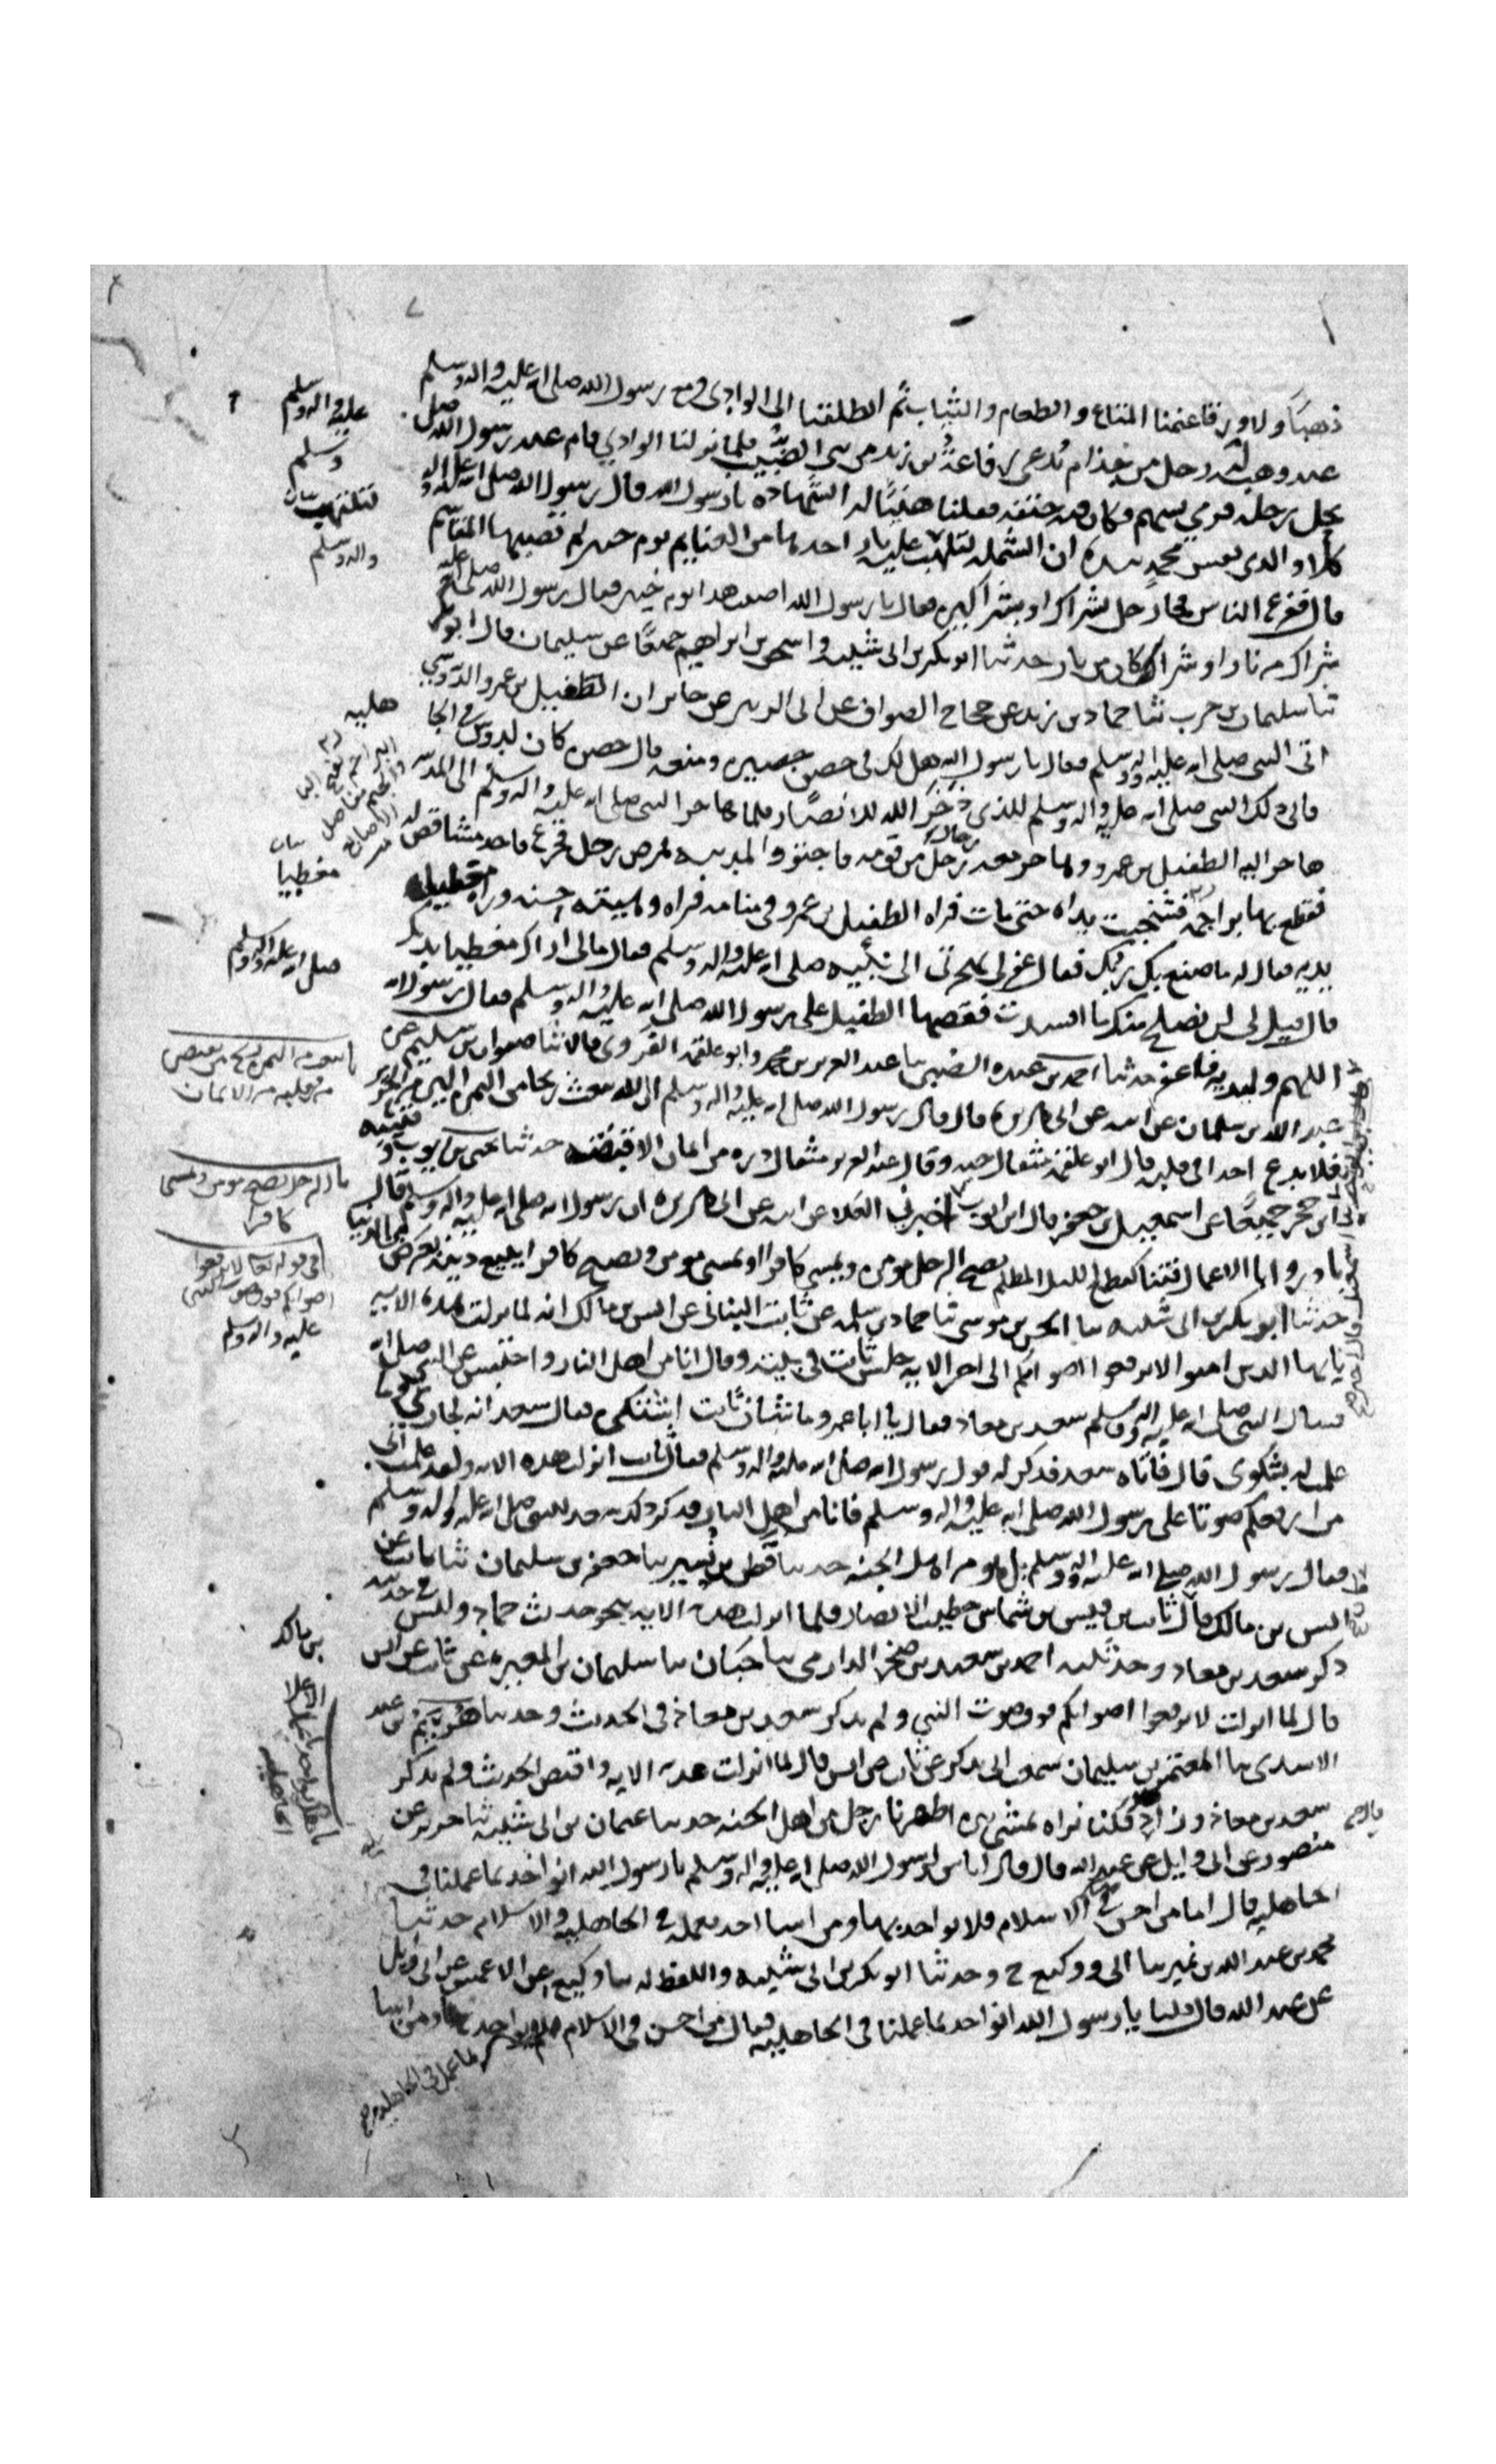 ذهبًا ولا ورقا غنمنا المتاع والطعام والثياب ثم انطلقنا الى الوادي ومع رسول الله صلى الله عليه واله وسلم
عبد وهبه له رجل من جذام يُدعى رفاعة بن زيد من بني الضبيب فلما نزلنا الوادي قام عبد رسول الله صلى
يحل رحله فرمي بسهم فكان فيه حتفه فقلنا هنيئًا له الشهادة يا رسول الله قال رسول الله صلى الله عليه واله
كلا والذي نفس محمد بيده ان الشملة لتلتهب عليه نار اخذها من الغنايم يوم خيبر لم تصبها المقاسم
قال ففزع الناس فجاء رجل بشراك او بشراكين فقال يا رسول الله اصبت هذا يوم خيبر فقال رسول الله صلى الله عليه
شراك من نار او شراكان من نار حدثنا ابو بكر بن ابي شيبة واسحق بن ابراهيم جميعًا عن سليمان قال ابو بكر
ثنا سليمان بن حرب ثنا حماد بن زيد عن حجاج الصواف عن ابي الزبير عن جابر ان الطفيل بن عمرو الدوسي
اتى النبي صلى الله عليه واله وسلم فقال يا رسول الله هل لك في حصن حصينة ومنعه قال حصن كان لدوس في الجا
فابى ذلك النبي صلى الله عليه واله وسلم للذي ذخر الله للانصار فلما هاجر النبي صلى الله عليه واله وسلم الى المدينة
هاجر اليه الطفيل بن عمرو وهاجر معه رجل من قومه فاجتووا المدينة فمرض رجل فجزع فاخذ مشاقص له
فقطع بها براجمه فشخبت يداه حتى مات فراه الطفيل بن عمرو في منامه فراه وهيئته حسنة وراه مغطيا
يديه فقال له ما صنع بك ربك فقال غفر لي بهجرتي الى نبيه صلى الله عليه واله وسلم فقال مالي اراك مغطيا يديك
قال قيل لي لن نصلح منك ما افسدت فقصها الطفيل على رسول الله صلى الله عليه واله وسلم فقال رسول الله
اللهم وليديه فاغفر حدثنا احمد بن عبدة الضبي ثنا عبد العزيز بن محمد وابو علقمة الفروي قالا ثنا صفوان بن سليم عن
عبد الله بن سلمان عن ابيه عن ابي هريرة قال قال رسول الله صلى الله عليه واله وسلم ان الله يبعث ريحا من اليمن الين من الحرير
فلا تدع احدا في قلبه قال ابو علقمة مثقال حبه وقال عبد العزيز مثقال ذره من ايمان الا قبضته حدثنا يحيى بن ايوب وقتيبة
وابن حجر جميعًا عن اسمعيل بن جعفر قال ابن ايوب اخبرني العلا عن ابيه عن ابي هريرة ان رسول الله صلى الله عليه واله وسلم قال
بادروا بالاعمال فتنا كقطع الليل المظلم يصبح الرجل مومن ويمسي كافرا او يمسي مومن ويصبح كافرا يبيع دينه بعرض من الدنيا
حدثنا ابو بكر بن ابي شيبة ثنا الحسن بن موسى ثنا حماد بن سلمه عن ثابت البناني عن انس بن مالك انه لما نزلت هذه الايه
يايها الذين امنوا لا ترفعوا اصواتكم الى اخر الايه جلس ثابت في بيته وقال انا من اهل النار واحتبس عن النبي صلى الله
فسال النبي صلى الله عليه واله وسلم سعد بن معاذ فقال يا ابا عمرو ما شان ثابت اشتكى فقال سعد انه لجاري وما
علمت له بشكوى قال فاتاه سعد فذكر له قول رسول الله صلى الله عليه واله وسلم فقال ثابت انزلت هذه الايه ولقد علمتم اني
من ارفعكم صوتا على رسول الله صلى الله عليه واله وسلم فانا من اهل النار فذكر ذلك سعد للنبي صلى الله عليه واله وسلم
فقال رسول الله صلى الله عليه واله وسلم بل هو من اهل الجنه حدثنا قطن بن نسير ثنا جعفر بن سليمان ثنا ثابت عن
انس بن مالك قال ثابت بن قيس بن شماس خطيب الانصار فلما انزلت هذه الايه بنحو حديث حماد وليس في حديثه
ذكر سعد بن معاد وحدثنيه احمد بن سعيد بن صخر الدارمي ثنا حبان ثنا سليمان بن المغيرة عن ثابت عن انس
قال لما انزلت لا ترفعوا اصواتكم فوق صوت النبي ولم يذكر سعد بن معاذ في الحديث وحدثنا هريم بن عبد
الاسدي ثنا المعتمر بن سليمان سمعت ابي يذكر عن ثابت عن انس قال لما انزلت هذه الايه واقتص الحديث ولم يذكر
سعد بن معاذ وزاد فكنا نراه يمشي بين اظهرنا رجل من اهل الجنه حدثنا عثمان بن ابي شيبة ثنا جرير عن
منصور عن ابي وايل عن عبد الله قال قال اناس لرسول الله صلى الله عليه واله وسلم يا رسول الله انواخذ بما عملنا في
الجاهليه قال اما من احسن في الاسلام فلا يواخذ بها ومن اسا اخذ بعمله في الجاهليه والاسلام حدثنا
محمد بن عبد الله بن نمير ثنا ابي ووكيع ح وحدثنا ابو بكر بن ابي شيبة واللفظ له ثنا وكيع عن الاعمش عن ابي وايل
عن عبد الله قال قلنا يا رسول الله انواخذ بما عملنا في الجاهليه فقال من احسن في الاسلام لم يواخذ بما
عمل في الجاهليه ومن
عليه واله وسلم
وسلم
لتلتهب
واله وسلم
هلية
مغطيا
صلى الله عليه واله وسلم
كافرا
في قوله تعالى لا ترفعوا
اصواتكم فوق صوت النبي
عليه واله وسلم
بن مالك
الاعلا